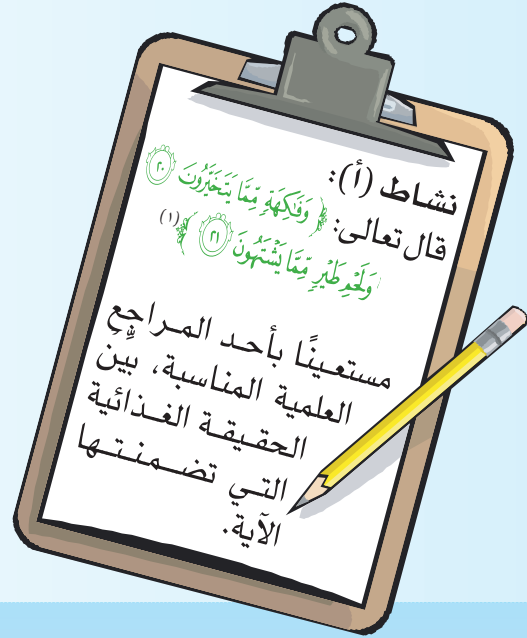 نشاط (أ):
قال تعالى: ﴿ وَفَٰكِهَةٍ مِّمَّا يَتَخَيَّرُونَ ﴿٢٠﴾
وَلَحْمِ طَيْرٍ مِّمَّا يَشْتَهُونَ ﴿٢١﴾ ﴾ (١)
مستعينًا بأحد المراجع
العلمية المناسبة، بيِّن
الحقيقة الغذائية
التي تضمنتها
الآية.